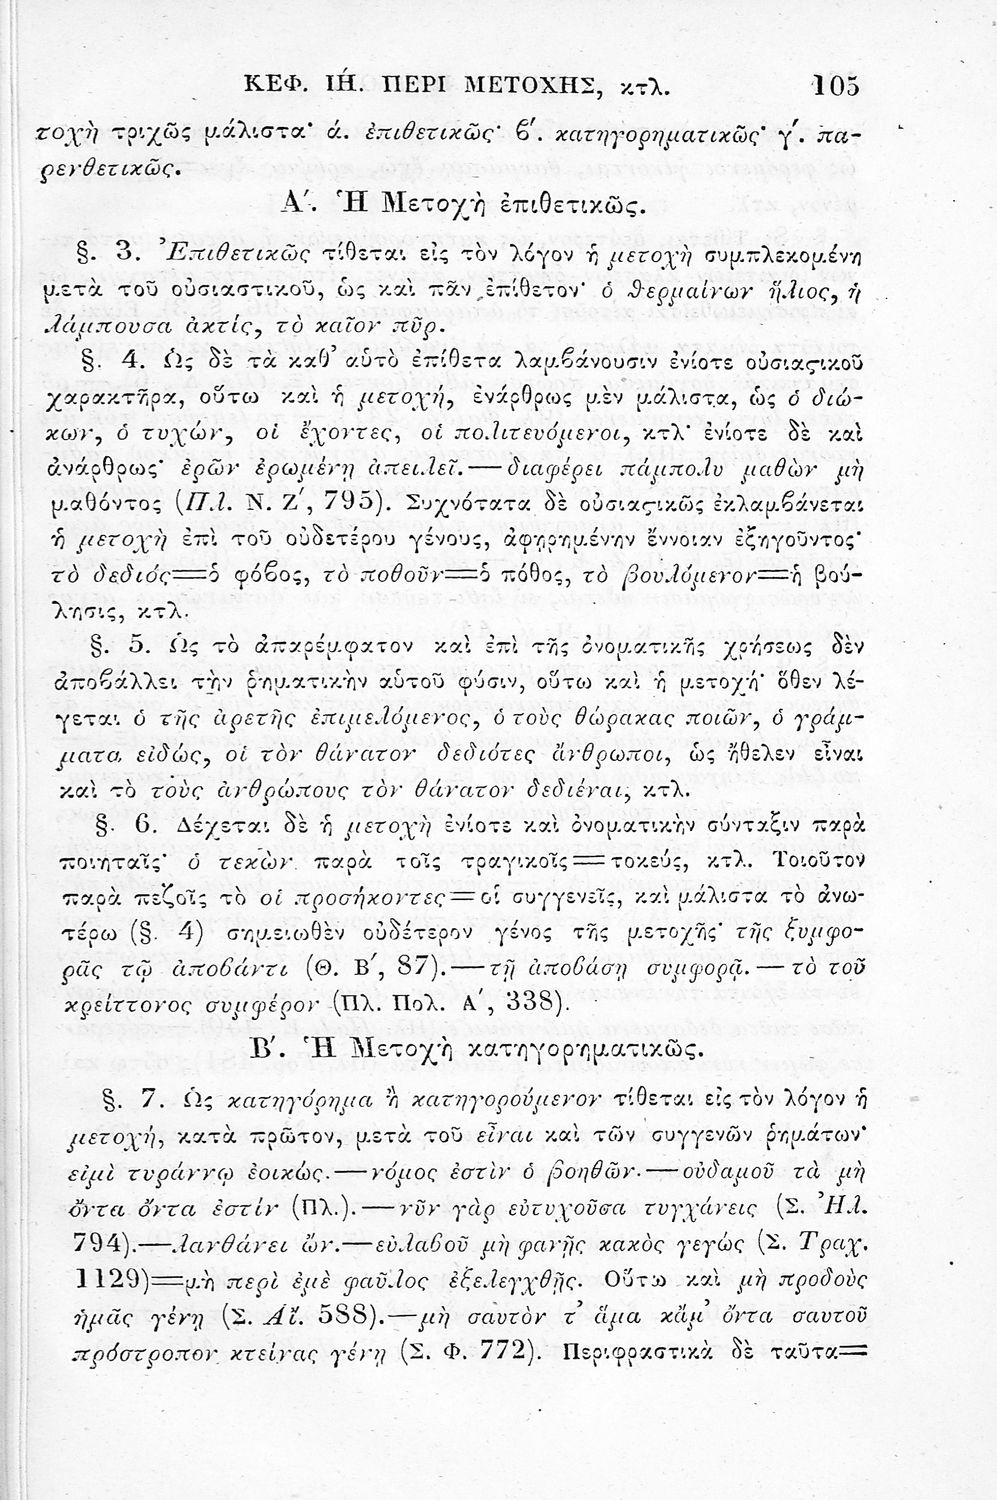 ΚΕΦ. ΙΉ. ΠΕΡΙ ΜΕΤΟΧΗΣ, κτλ. 105
τοχὴ τριχῶς μάλιστα· ά. ἐπιθετικῶς· ϐ′. κατηγορηματικῶς· γ′. πα-
ρενθετικῶς.
Α′. Ἡ Μετοχὴ ἐπιθετικῶς.
§. 3. Ἐπιθετικῶς τίθεται εἰς τὸν λόγον ἡ μετοχὴ συμπλεκομένη
μετὰ τοῦ οὐσιαστικοῦ, ὡς καὶ πᾶν ἐπίθετον· ὁ ϑερμαίνων ἥλιος, ἡ
λάμπουσα ἀκτίς, τὸ καῖον πῦρ.
§. 4. Ὡς δὲ τὰ καθ’ αὑτὸ ἐπίθετα λαμϐάνουσιν ἐνίοτε οὐσιαϛικοῦ
χαρακτῆρα, οὕτω καὶ ἡ μετοχή, ἐνάρθρως μὲν μάλιστα, ὡς ὁ διώ-
κων, ὁ τυχών, οἱ ἔχοντες, οἱ πολιτευόμενοι, κτλ· ἐνίοτε δὲ καὶ
ἀνάρθρως· ἐρῶν ἐρωμένῃ ἀπειλεῖ.—διαφέρει πάμπολυ μαθὼν μὴ
μαθόντος (Πλ. Ν. Ζ′, 795). Συχνότατα δὲ οὐσιαϛικῶς ἐκλαμϐάνεται
ἡ μετοχὴ ἐπὶ τοῦ οὐδετέρου γένους, ἀφῃρημένην ἔννοιαν ἐξηγοῦντος·
τὸ δεδιός=ὁ φόϐος, τὸ ποθοῦν=ὁ πόθος, τὸ βουλόμενον=ἡ βού-
λησις, κτλ.
§. 5. Ὡς τὸ ἀπαρέμφατον καὶ ἐπὶ τῆς ὀνοματικῆς χρήσεως δὲν
ἀποϐάλλει τὴν ῥηματικὴν αὑτοῦ φύσιν, οὕτω καὶ ἡ μετοχή· ὅθεν λέ-
γεται ὁ τῆς ἀρετῆς ἐπιμελόμενος, ὁ τοὺς θώρακας ποιῶν, ὁ γράμ-
ματα εἰδώς, οἱ τὸν θάνατον δεδιότες ἄνθρωποι, ὡς ἤθελεν εἶναι
καὶ τὸ τοὺς ἀνθρώπους τὸν θάνατον δεδιέναι, κτλ.
§. 6. Δέχεται δὲ ἡ μετοχὴ ἐνίοτε καὶ ὀνοματικὴν σύνταξιν παρὰ
ποιηταῖς· ὁ τεκὼν παρὰ τοῖς τραγικοῖς=τοκεύς, κτλ. Τοιοῦτον
παρὰ πεζοῖς τὸ οἱ προσήκοντες=οἱ συγγενεῖς, καὶ μάλιστα τὸ ἀνω-
τέρω (§. 4) σημειωθὲν οὐδέτερον γένος τῆς μετοχῆς· τῆς ξυμφο-
ρᾶς τῷ ἀποϐάντι (Θ. Β′, 87).—τῇ ἀποϐάσῃ συμφορᾷ.—τὸ τοῦ
κρείττονος συμφέρον (Πλ. Πολ. Α′, 338).
Β′. Ἡ Μετοχὴ κατηγορηματικῶς.
§. 7. Ὡς κατηγόρημα ἢ κατηγορούμενον τίθεται εἰς τὸν λόγον ἡ
μετοχή, κατὰ πρῶτον, μετὰ τοῦ εἶναι καὶ τῶν συγγενῶν ῥημάτων·
εἰμὶ τυράννῳ ἐοικώς.—νόμος ἐστὶν ὁ βοηθῶν.—οὐδαμοῦ τὰ μὴ
ὄντα ὄντα ἐστίν (Πλ.).—νῦν γὰρ εὐτυχοῦσα τυγχάνεις (Σ. Ἠλ.
794).—λανθάνει ὤν.—εὐλαϐοῦ μὴ φανῇς κακὸς γεγώς (Σ. Τραχ.
1129)=μὴ περὶ ἐμὲ φαῦλος ἐξελεγχθῇς. Οὕτω καὶ μὴ προδοὺς
ἡμᾶς γένῃ (Σ. Αἴ. 588).—μὴ σαυτὸν τ’ ἅμα κἄμ’ ὄντα σαυτοῦ
πρόστροπον κτείνας γένῃ (Σ. Φ. 772). Περιφραστικὰ δὲ ταῦτα=